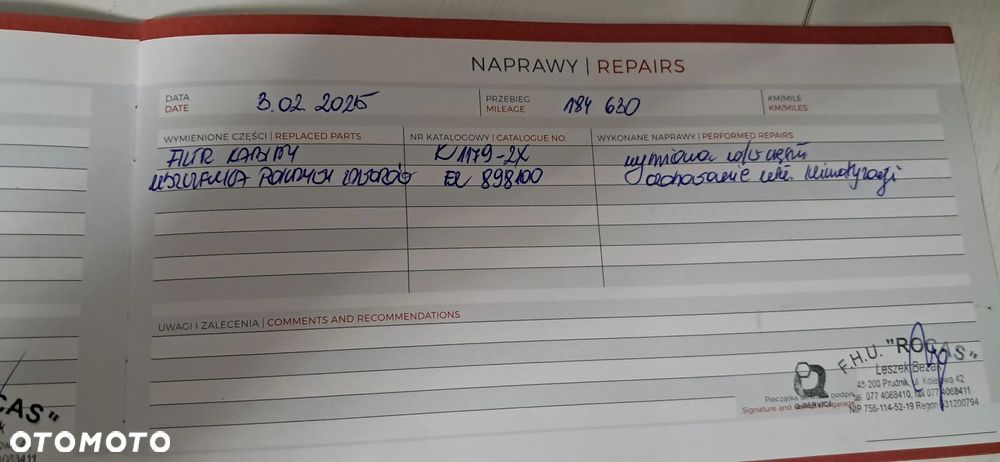 NAPRAWY | REPAIRS
DATA
DATE
3.02 2025
PRZEBIEG
MILEAGE
184 630
KM/MILE
KM/MILES
WYMIENIONE CZĘŚCI | REPLACED PARTS
NR KATALOGOWY | CATALOGUE NO.
WYKONANE NAPRAWY | PERFORMED REPAIRS
FILTR KABINY
K1179-2X
wymiana w/w części
USZCZELKA POKRYWY ZAWORÓW
EL 898100
UWAGI I ZALECENIA | COMMENTS AND RECOMMENDATIONS
F.H.U. "ROCAS"
Leszek
48-200 Prudnik, ul. Kolejowa 42
077 4068410, fax 077 4068411
NIP 755-114-52-19 Regon 531200794
Q-SERVICE
Pieczątka podpis
Signature and garage
CAS"
4068411
OTOMOTO